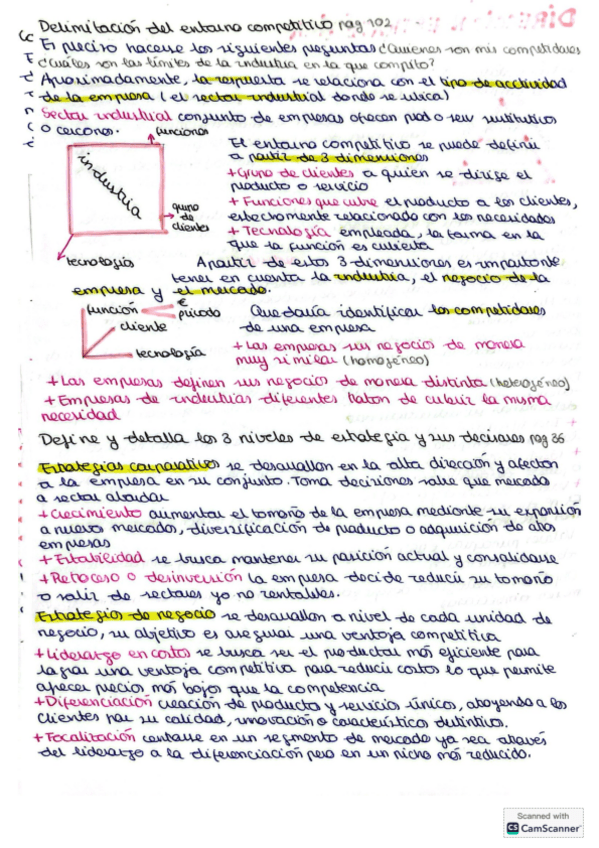 Delimitación del entorno competitivo pag 102
Es preciso hacerse las siguientes preguntas ¿Quienes son mis competidores
¿Cuáles son los límites de la industria en la que compito?
Aproximadamente, la respuesta se relaciona con el tipo de acctividad
de la empresa (el sector industrial donde se ubica)
Sector industrial conjunto de empresas ofrecen prod o serv sustitutivos
o cercanos.
funciones
industria
grupo
de
clientes
tecnologías
El entorno competitivo se puede definir
a partir de 3 dimensiones
+ Grupo de clientes a quien se dirige el
producto o servicio
+ Funciones que cubre el producto a los clientes,
estrechamente relacionado con las necesidades
+ Tecnología empleada, la forma en la
que la función es cubierta
A partir de estas 3 dimensiones es importante
tener en cuenta la industria, el negocio de la
empresa y el mercado.
función
cliente
tecnología
Quedaría identificar los competidores
de una empresa
+ Las empresas sus negocios de manera
muy similar (homogéneo)
+ Las empresas definen sus negocios de manera distinta (heterogéneo)
+ Empresas de industrias diferentes tratan de cubrir la misma
necesidad
Define y detalla los 3 niveles de estrategia y sus decisiones pag 36
Estrategias corporativas se desarrollan en la alta dirección y afectan
a la empresa en su conjunto. Toma decisiones sobre que mercado
o sector abordar
+ Crecimiento aumentar el tamaño de la empresa mediante su expansión
a nuevos mercados, diversificación de producto o adquisición de otras
empresas
+ Estabilidad se busca mantener su posición actual y consolidarse
+ Retroceso o desinversión la empresa decide reducir su tamaño
o salir de sectores ya no rentables.
Estrategias de negocio se desarrollan a nivel de cada unidad de
negocio, su objetivo es asegurar una ventaja competitiva
+ Liderazgo en costos se busca ser el productor más eficiente para
lograr una ventaja competitiva para reducir costos lo que permite
ofrecer precios más bajos que la competencia
+ Diferenciación creación de producto y servicios únicos, atrayendo a los
clientes por su calidad, innovación o características distintivas.
+ Focalización centrarse en un segmento de mercado ya sea através
del liderazgo a la diferenciación pero en un nicho más reducido.
Scanned with
CS CamScanner